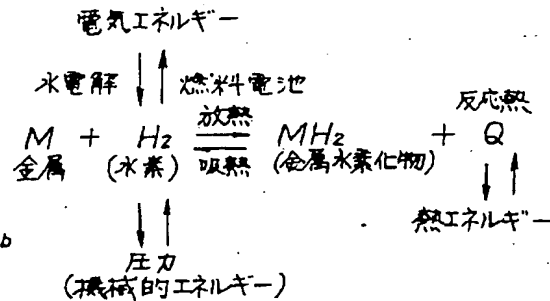 電気エネルギー
水電解 燃料電池
放熱 反応熱
M + H2 MH2 + Q
金属 (水素) 吸熱 (金属水素化物)
熱エネルギー
b
圧力
(機械的エネルギー)